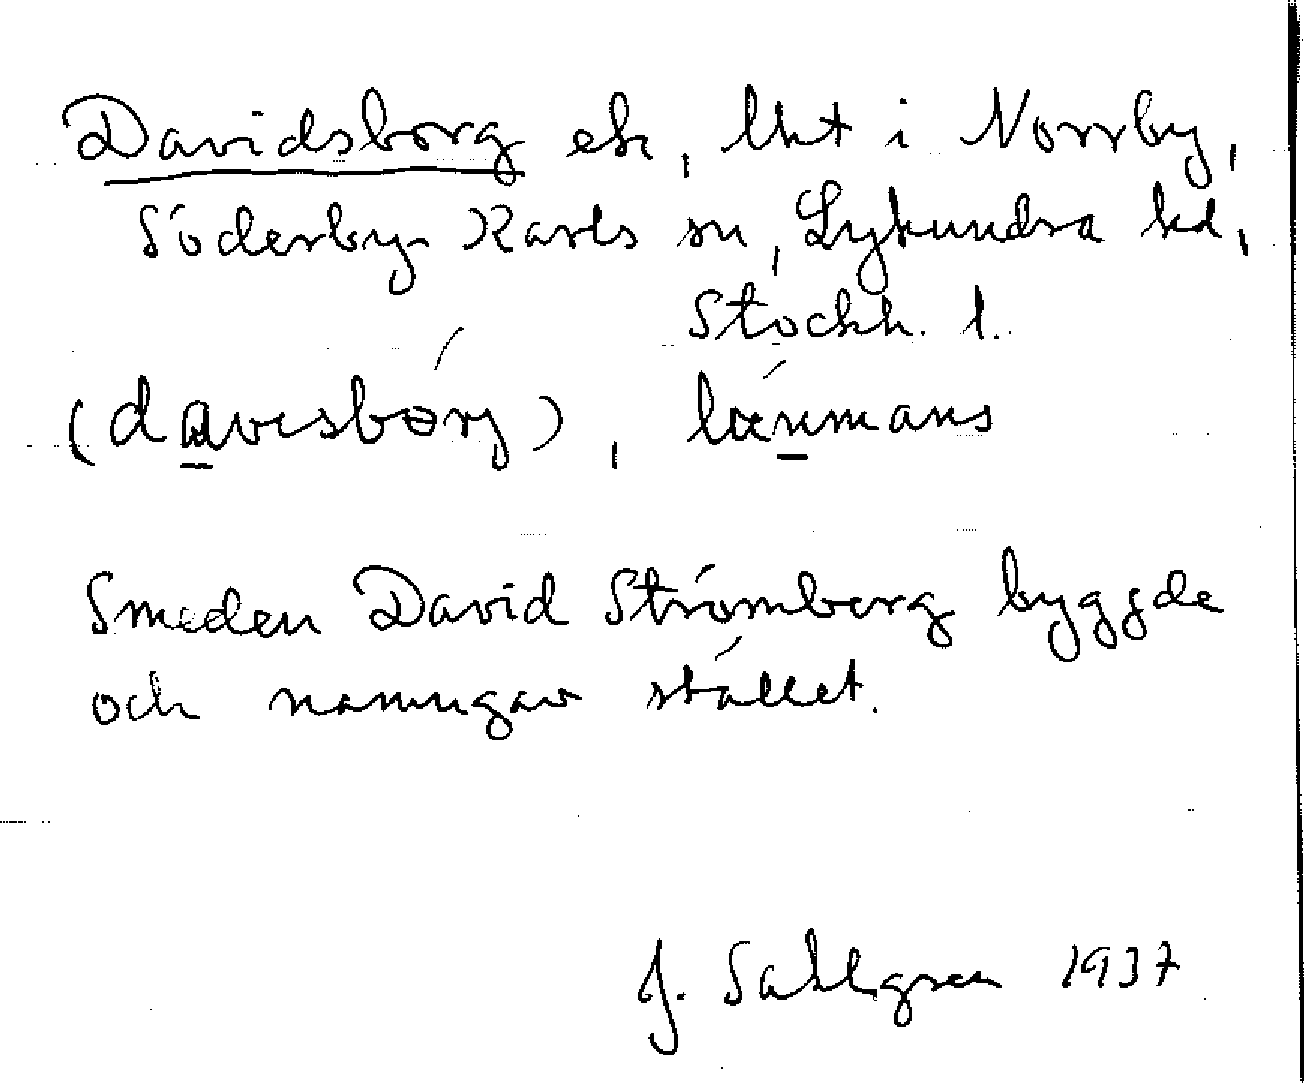 Davidsborg ek, lht i Norrby,
Söderby-Karls sn, Lyhundra hd,
Stockh. l.
(davisbórj), lǽnmans
Smeden David Strömberg byggde
och namngav stället.
J. Sahlgren 1937